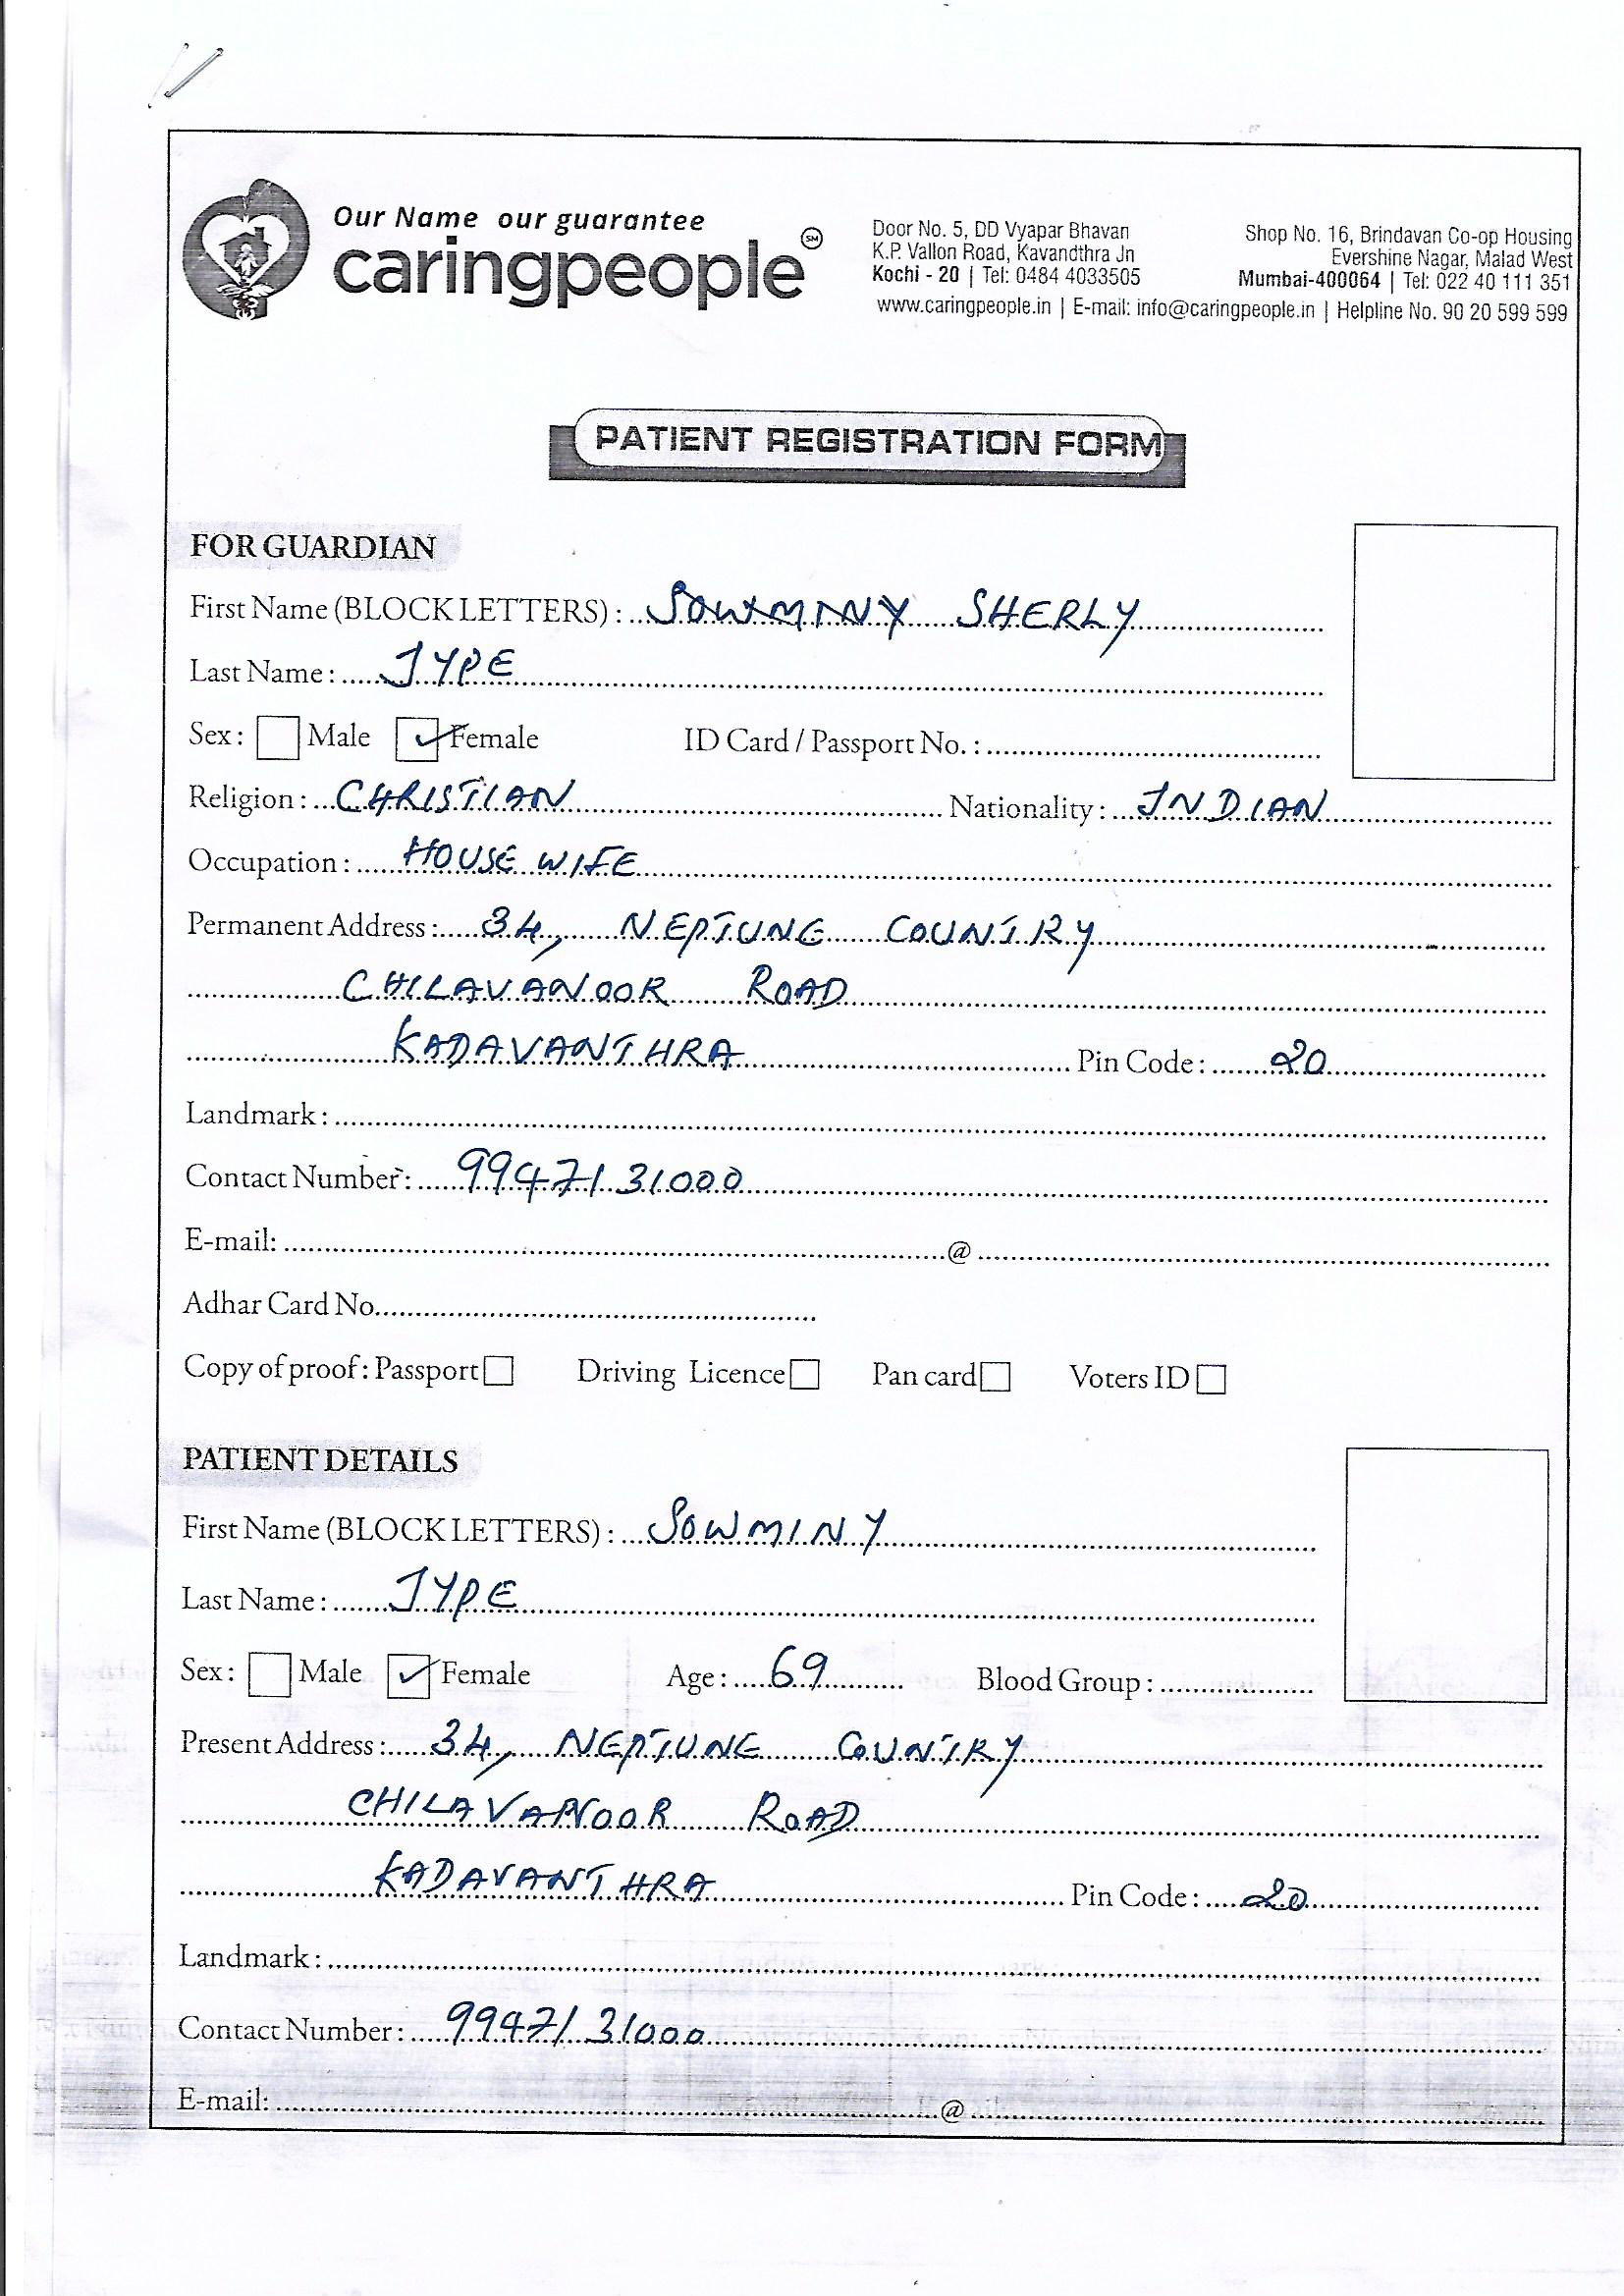 Our Name our guarantee
caringpeople SM
Door No. 5, DD Vyapar Bhavan
K.P. Vallon Road, Kavandthra Jn
Kochi - 20 | Tel: 0484 4033505
Shop No. 16, Brindavan Co-op Housing
Evershine Nagar, Malad West
Mumbai-400064 | Tel: 022 40 111 351
www.caringpeople.in | E-mail: info@caringpeople.in | Helpline No. 90 20 599 599
PATIENT REGISTRATION FORM
FOR GUARDIAN
First Name (BLOCK LETTERS) : SOWMINY SHERLY
Last Name : JYPE
Sex : Male Female ID Card / Passport No. :
Religion : CHRISTIAN Nationality : INDIAN
Occupation : HOUSE WIFE
Permanent Address : 34, NEPTUNE COUNTRY
CHILAVANOOR ROAD
KADAVANTHRA Pin Code : 20
Landmark :
Contact Number : 9947131000
E-mail: @
Adhar Card No.
Copy of proof : Passport Driving Licence Pan card Voters ID
PATIENT DETAILS
First Name (BLOCK LETTERS) : SOWMINY
Last Name : JYPE
Sex : Male Female Age : 69 Blood Group :
Present Address : 34, NEPTUNE COUNTRY
CHILAVANOOR ROAD
KADAVANTHRA Pin Code : 20
Landmark :
Contact Number : 9947131000
E-mail: @